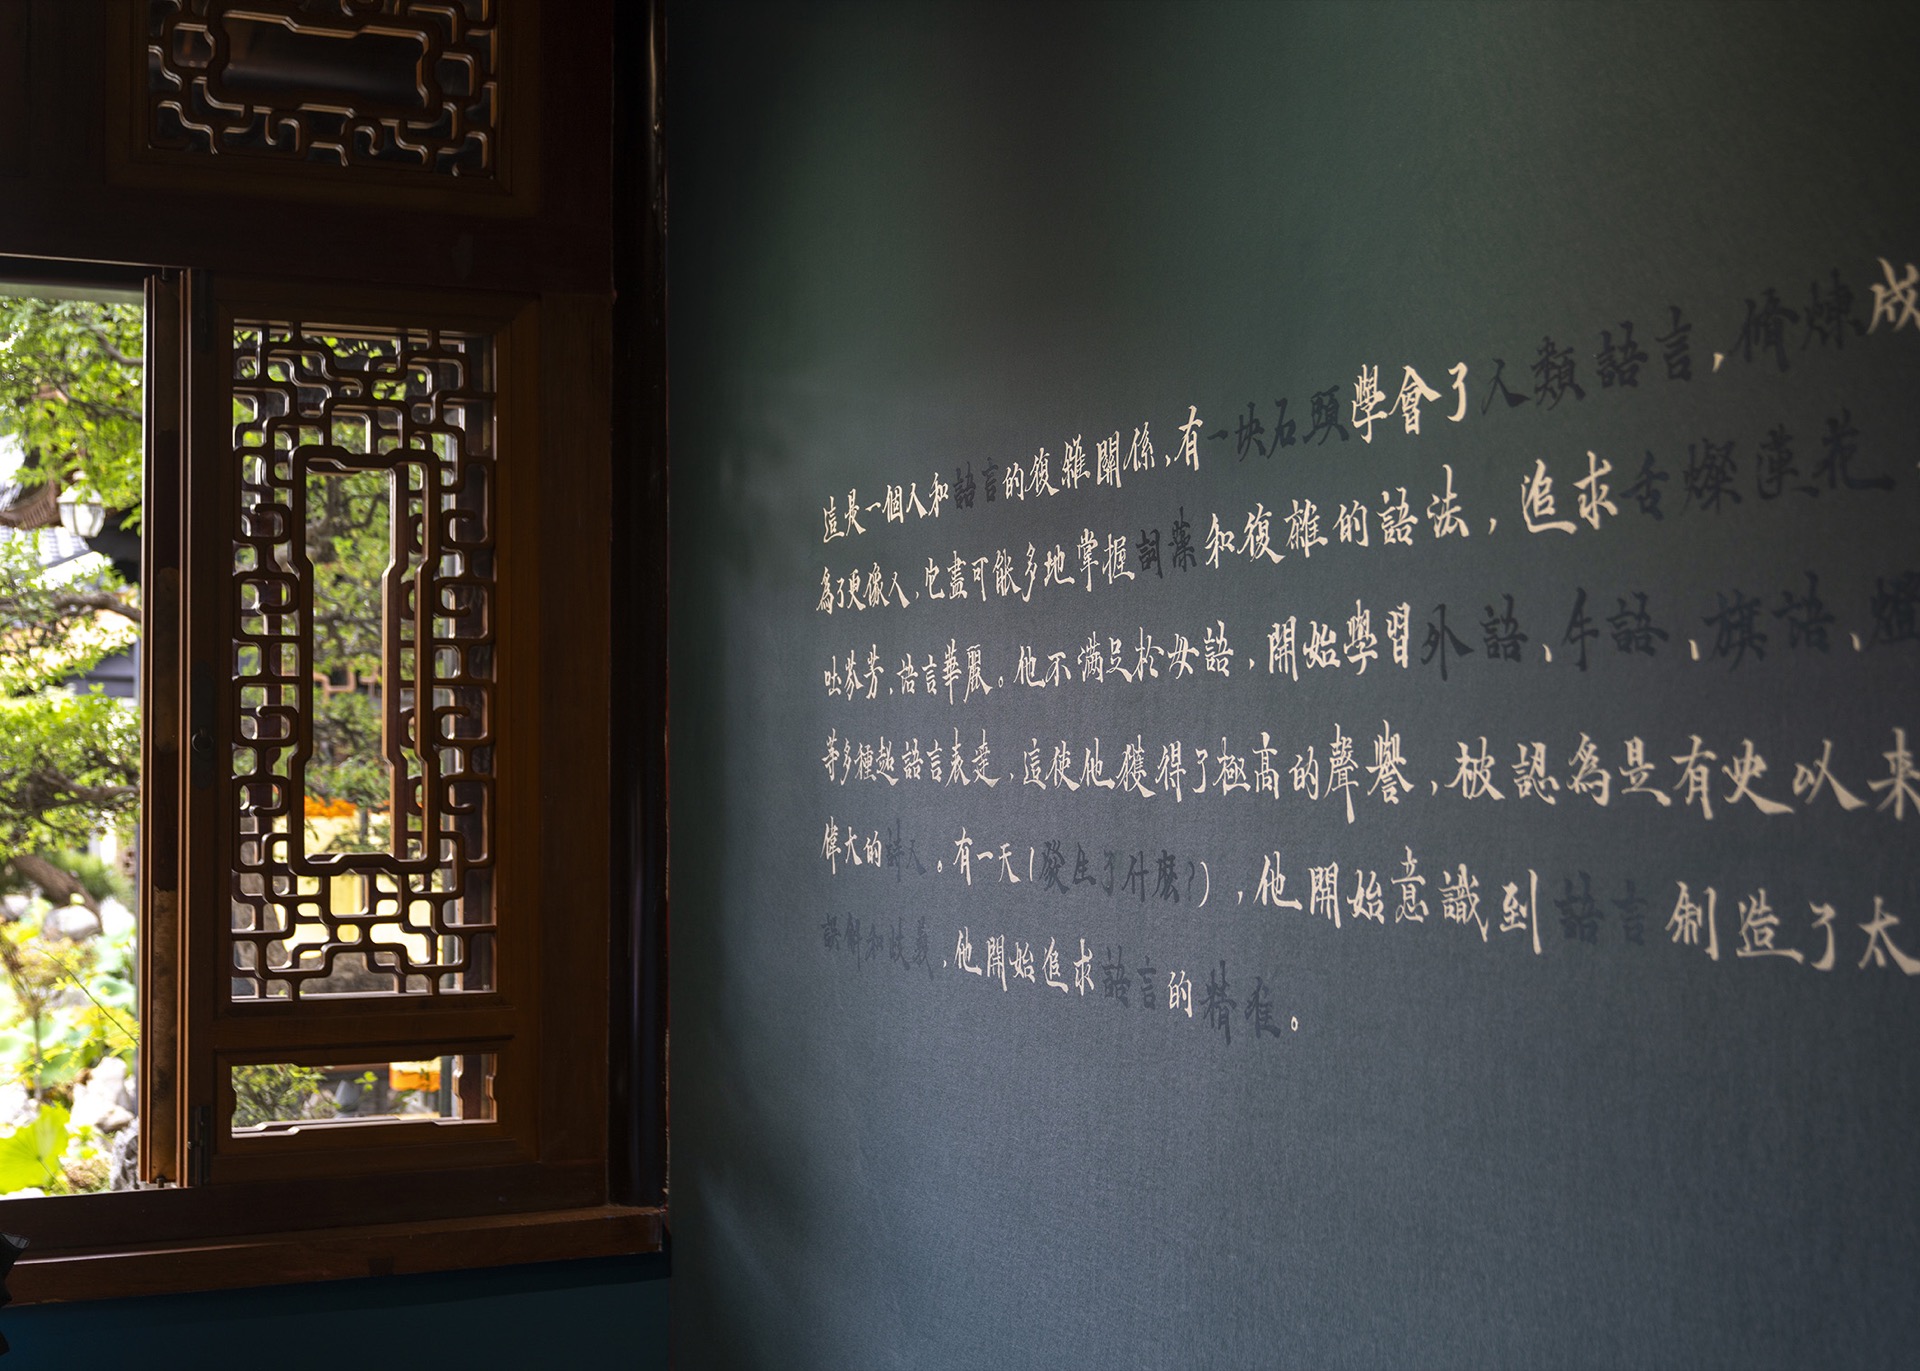 這是一個人和語言的復雜關係，有一块石頭學會了人類語言，脩煉成
為了更像人，它盡可能多地掌握詞藻和復雜的語法，追求舌燦蓮花
吐芬芳，語言華麗。他不滿足於母語，開始學習外語、手語、旗語、燈
等多種超語言表達，這使他獲得了極高的聲譽，被認為是有史以来
偉大的詩人。有一天（發生了什麼？），他開始意識到語言制造了太
誤解和歧義，他開始追求語言的精准。